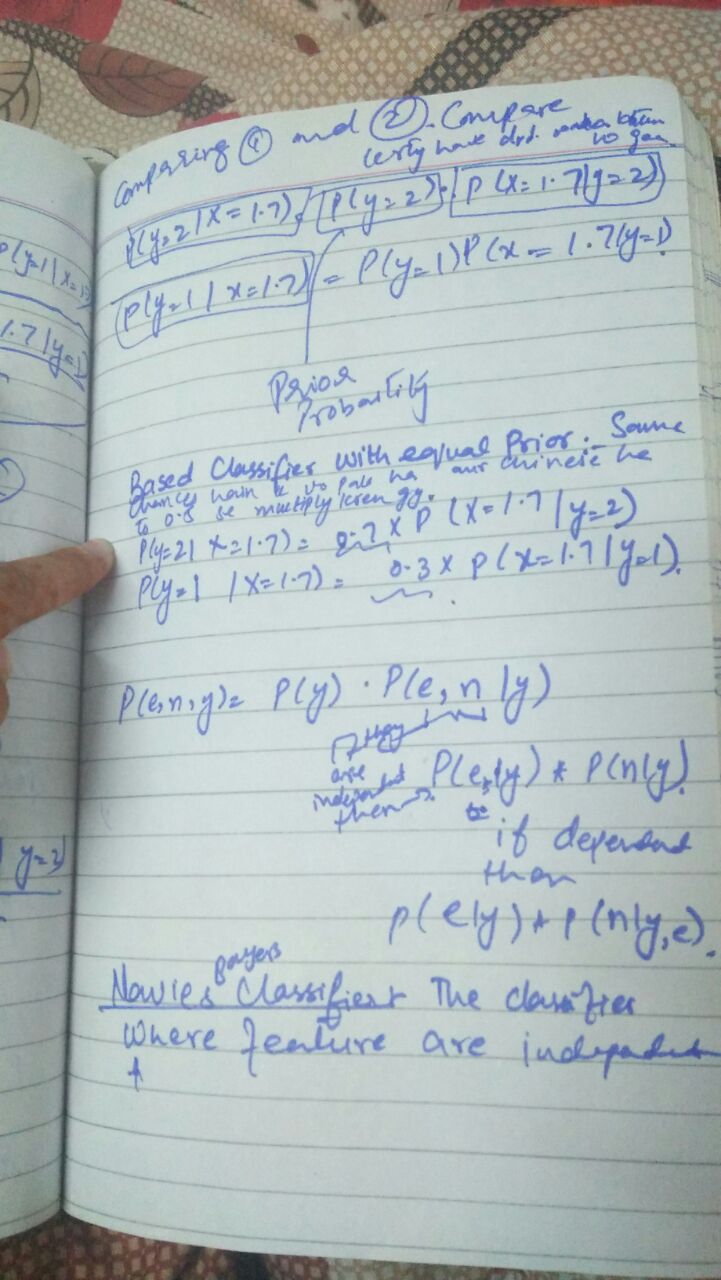 Comparing ① and ②. Compare
P(y=2 | X=1.7) = P(y=2) . P(X=1.7|y=2)
P(y=1 | x=1.7) = P(y=1) P(x = 1.7|y=1)
Prior
Probability
Based Classifier With equal Prior :- Same
chances hain k vo pak ha aur chinese he
to 0.5 se multiply kren gy.
P(y=2| X=1.7) = 0.7 x P (X=1.7 | y=2)
P(y=1 | X=1.7) = 0.3 x P(x=1.7|y=1).
P(e,n,y) = P(y) . P(e, n | y)
if they
are
independent
then
P(e|y) * P(n|y).
if dependent
then
P(e|y) * P(n|y,e).
Navies bayers Classifier The classifier
where feature are independent
P(y=1 | x=1.7
1.7 | y=1)
y=2)